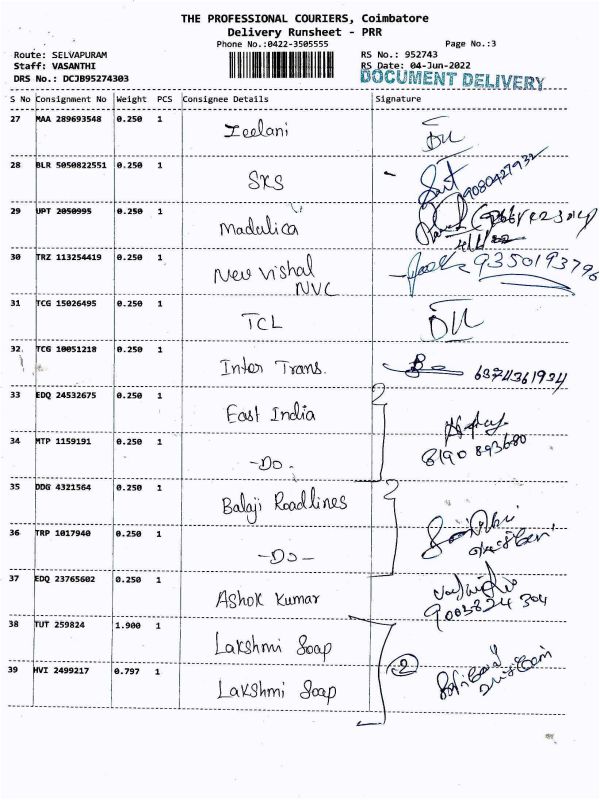 THE PROFESSIONAL COURIERS, Coimbatore
Delivery Runsheet - PRR
Phone No.:0422-3505555
Page No.:3
Route: SELVAPURAM
RS No.: 952743
Staff: VASANTHI
RS Date: 04-Jun-2022
DRS No.: DCJB95274303
DOCUMENT DELIVERY
S No Consignment No Weight PCS Consignee Details Signature
27 MAA 289693548 0.250 1 Zeelani
28 BLR 5050822551 0.250 1 SKS 9080427932
29 UPT 2050995 0.250 1 Madulica
30 TRZ 113254419 0.250 1 New Vishal 9350193796
NVC
31 TCG 15026495 0.250 1 TCL
32 TCG 10051218 0.250 1 Inter Trans. 6374361934
33 EDQ 24532675 0.250 1 East India
34 MTP 1159191 0.250 1 -Do. 8190893680
35 DDG 4321564 0.250 1 Balaji Roadlines
36 TRP 1017940 0.250 1 -Do-
37 EDQ 23765602 0.250 1 Ashok Kumar 9003824304
38 TUT 259824 1.900 1 Lakshmi Soap
39 HVI 2499217 0.797 1 Lakshmi Soap
2